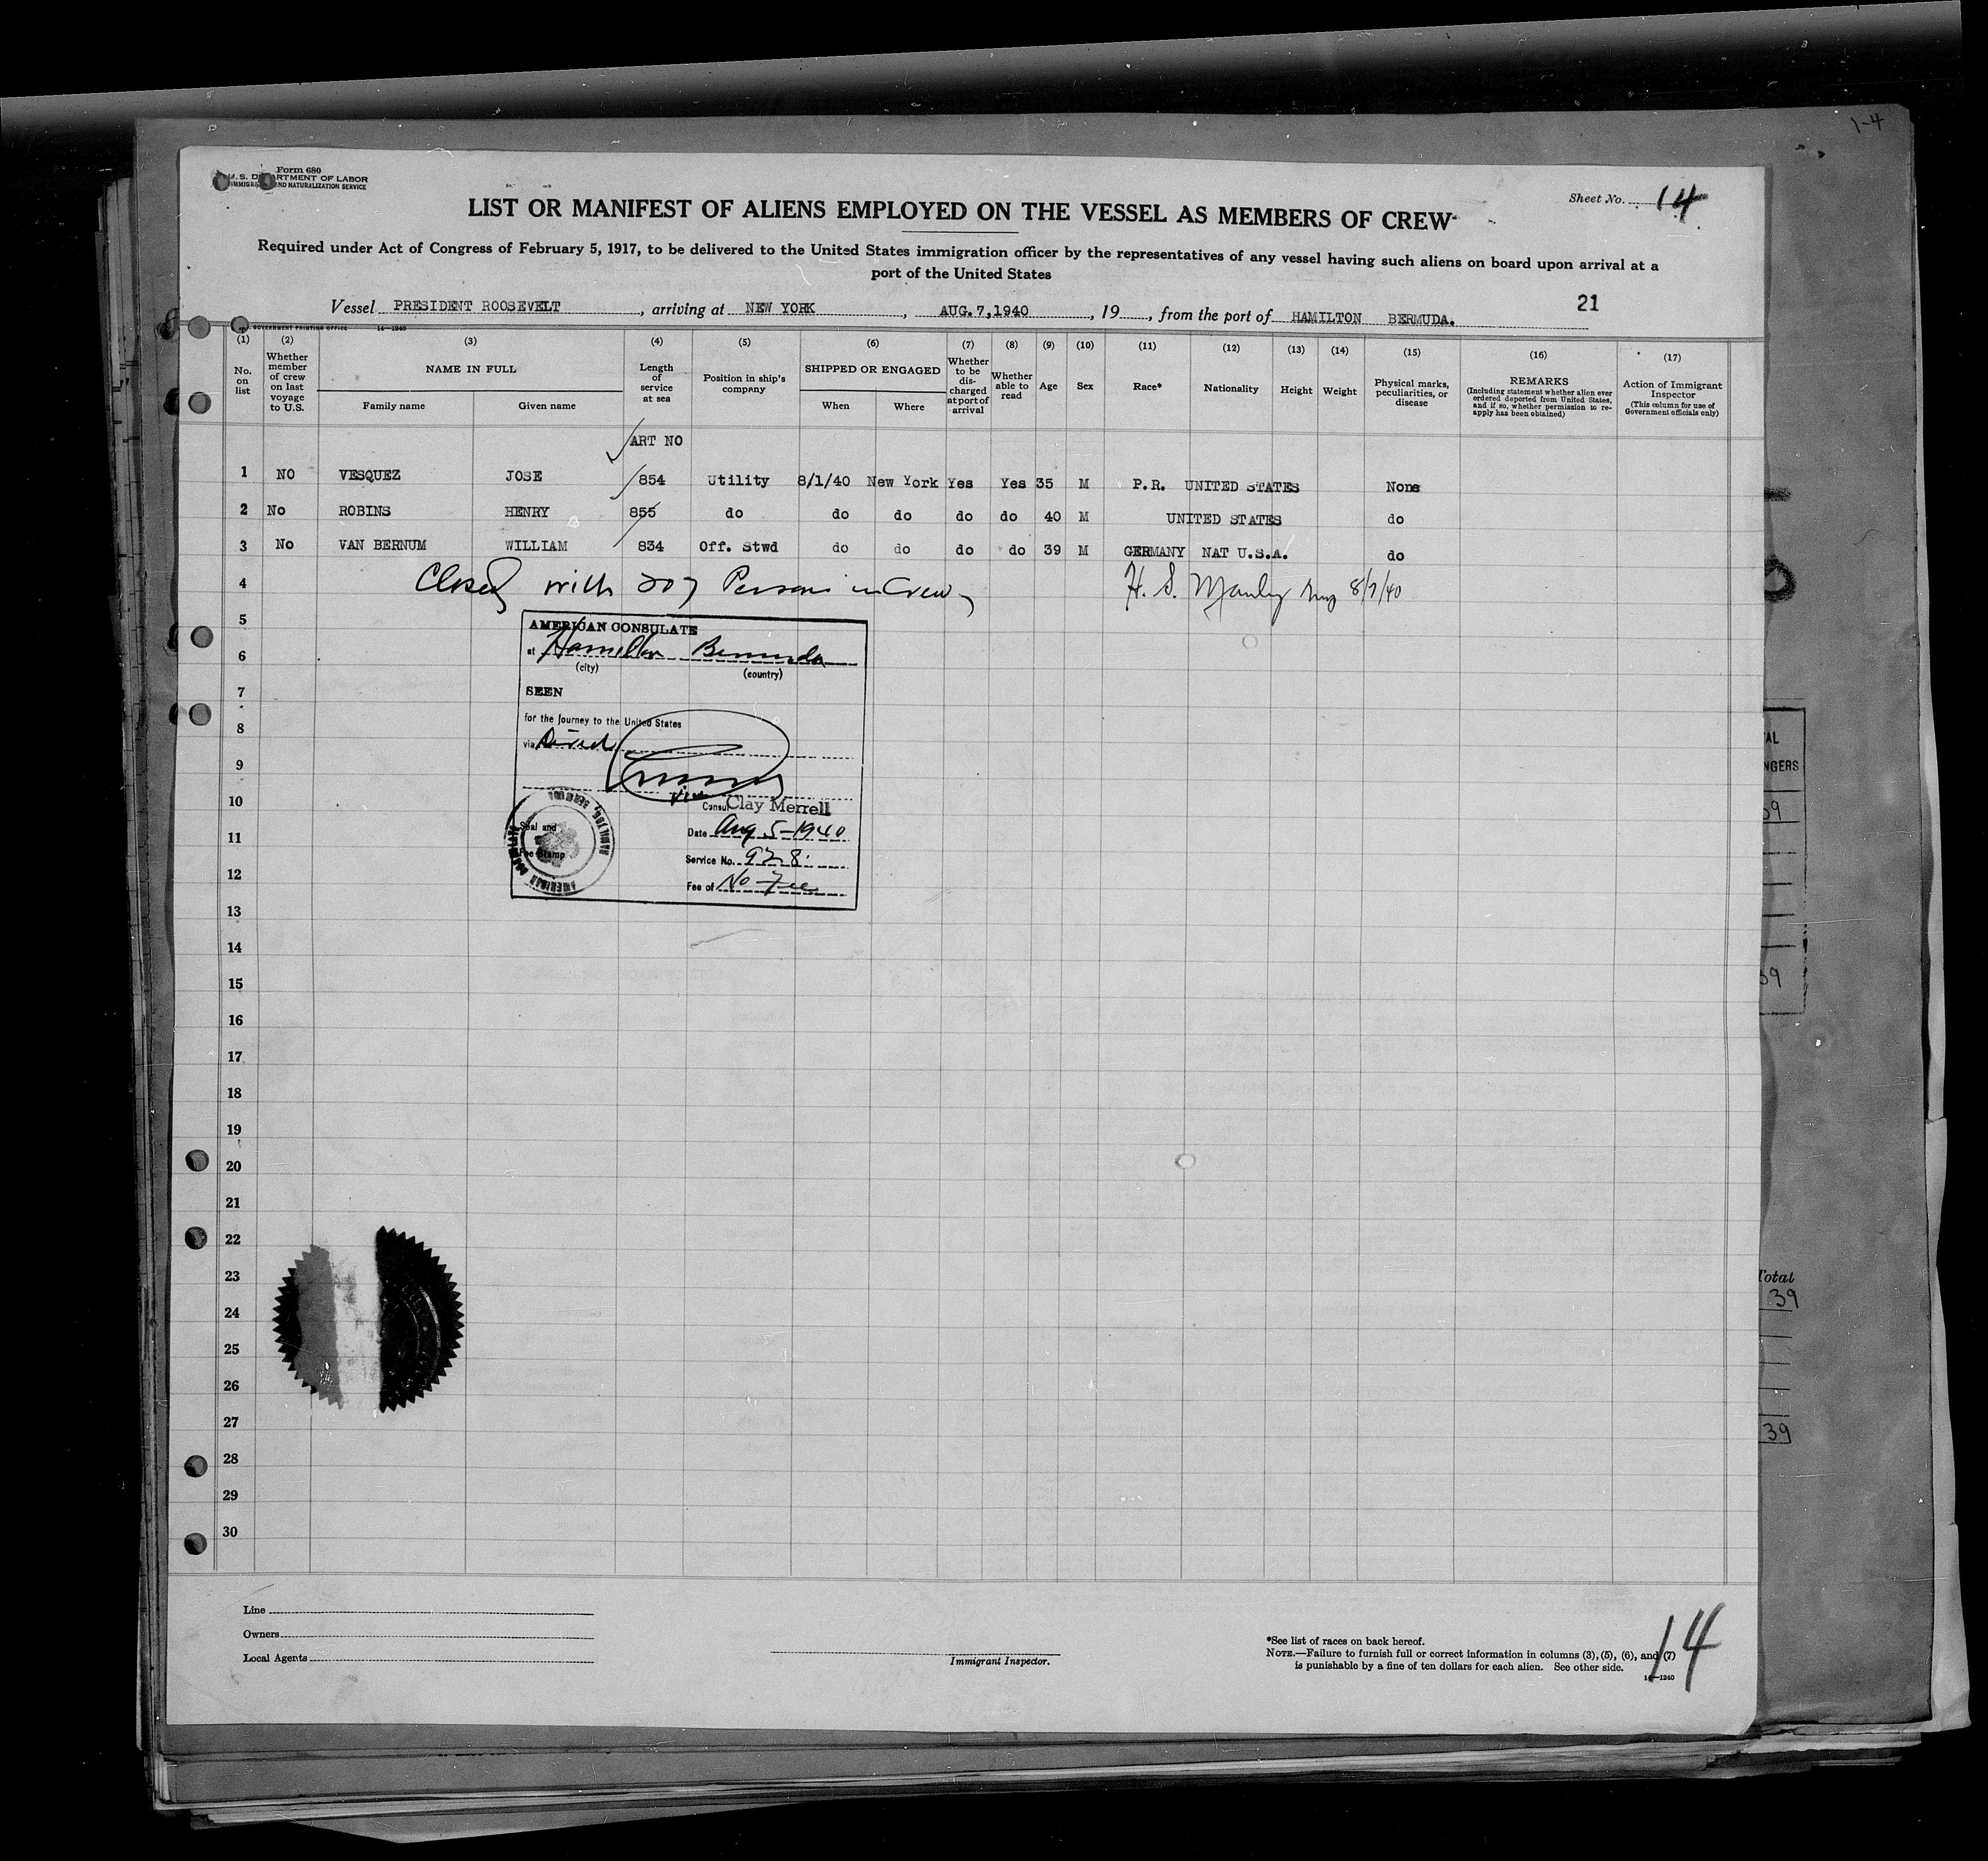 1-4
Form 680
U. S. DEPARTMENT OF LABOR
IMMIGRATION AND NATURALIZATION SERVICE
Sheet No. 14
LIST OR MANIFEST OF ALIENS EMPLOYED ON THE VESSEL AS MEMBERS OF CREW
Required under Act of Congress of February 5, 1917, to be delivered to the United States immigration officer by the representatives of any vessel having such aliens on board upon arrival at a
port of the United States
21
Vessel PRESIDENT ROOSEVELT, arriving at NEW YORK, AUG. 7, 1940, 19, from the port of HAMILTON BERMUDA.
GOVERNMENT PRINTING OFFICE 14-1240
(1) (2) (3) (4) (5) (6) (7) (8) (9) (10) (11) (12) (13) (14) (15) (16) (17)
No. on list
Whether member of crew on last voyage to U.S.
NAME IN FULL
Family name Given name
Length of service at sea
Position in ship's company
SHIPPED OR ENGAGED
When Where
Whether to be discharged at port of arrival
Whether able to read
Age
Sex
Race*
Nationality
Height
Weight
Physical marks, peculiarities, or disease
REMARKS
(Including statement whether alien ever ordered deported from United States, and if so, whether permission to re-apply has been obtained)
Action of Immigrant Inspector
(This column for use of Government officials only)
ART NO
1 NO VESQUEZ JOSE 854 Utility 8/1/40 New York Yes Yes 35 M P.R. UNITED STATES None
2 No ROBINS HENRY 855 do do do do do 40 M UNITED STATES do
3 No VAN BERNUM WILLIAM 834 Off. Stwd do do do do 39 M GERMANY NAT U.S.A. do
4 Closed with 207 Persons in Crew H. S. Manly 8/7/40
5
AMERICAN CONSULATE
at Hamilton Bermuda
(city) (country)
6
7
SEEN
for the journey to the United States
8
via Direct
9
10
Vice Consul Clay Merrell
Seal and
Date Aug 5-1940
11
Fee Stamp
Service No. 928
12
Fee of No Fee
13
14
15
16
17
18
19
20
21
22
23
24
25
26
27
28
29
30
AL
NGERS
39
39
Total
39
39
Line
Owners
Local Agents
Immigrant Inspector.
*See list of races on back hereof.
NOTE.—Failure to furnish full or correct information in columns (3), (5), (6), and (7)
is punishable by a fine of ten dollars for each alien. See other side.
14-1240
14